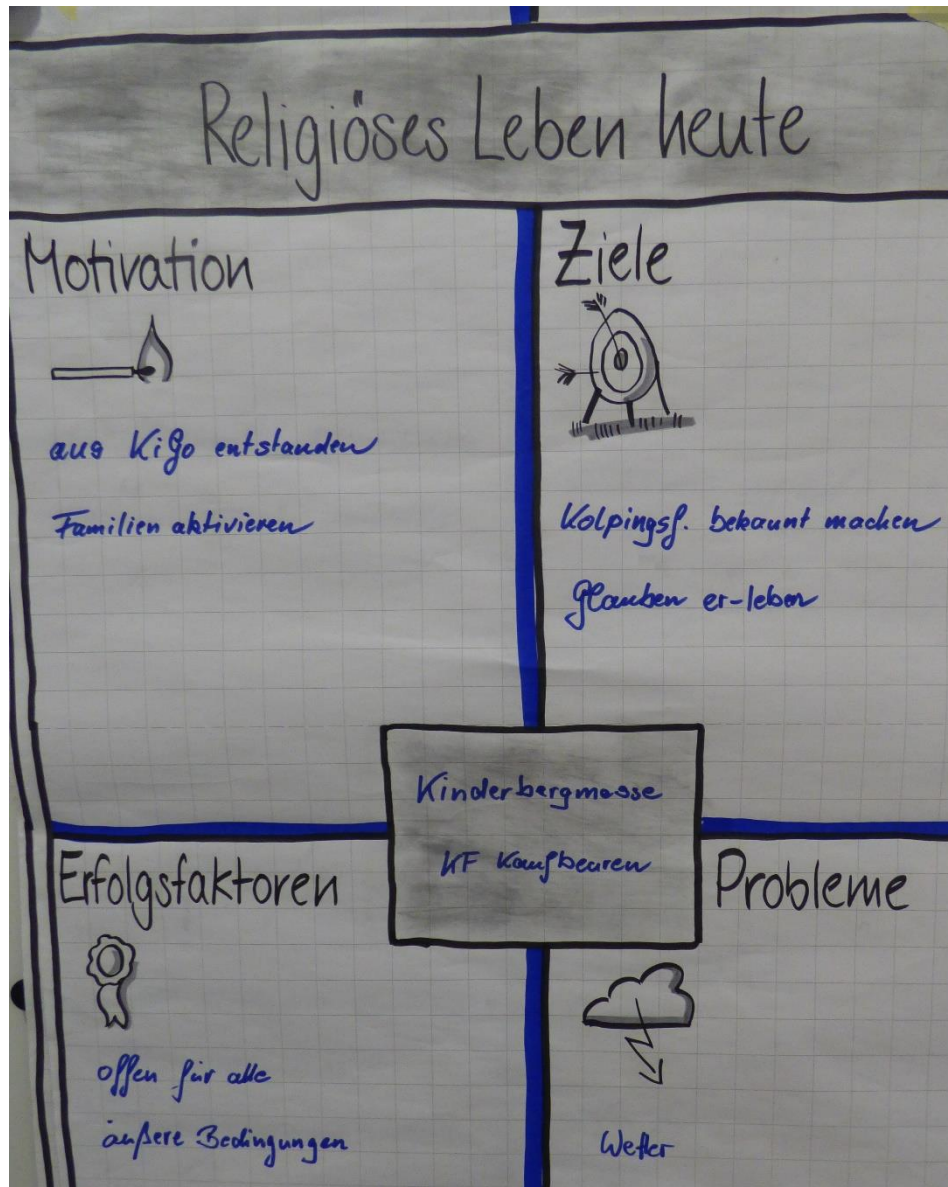 Religiöses Leben heute
Motivation
aus KiGo entstanden
Familien aktivieren
Ziele
Kolpingsf. bekannt machen
Glauben er-leben
Kinderbergmesse
KF Kaufbeuren
Erfolgsfaktoren
offen für alle
äußere Bedingungen
Probleme
Wetter